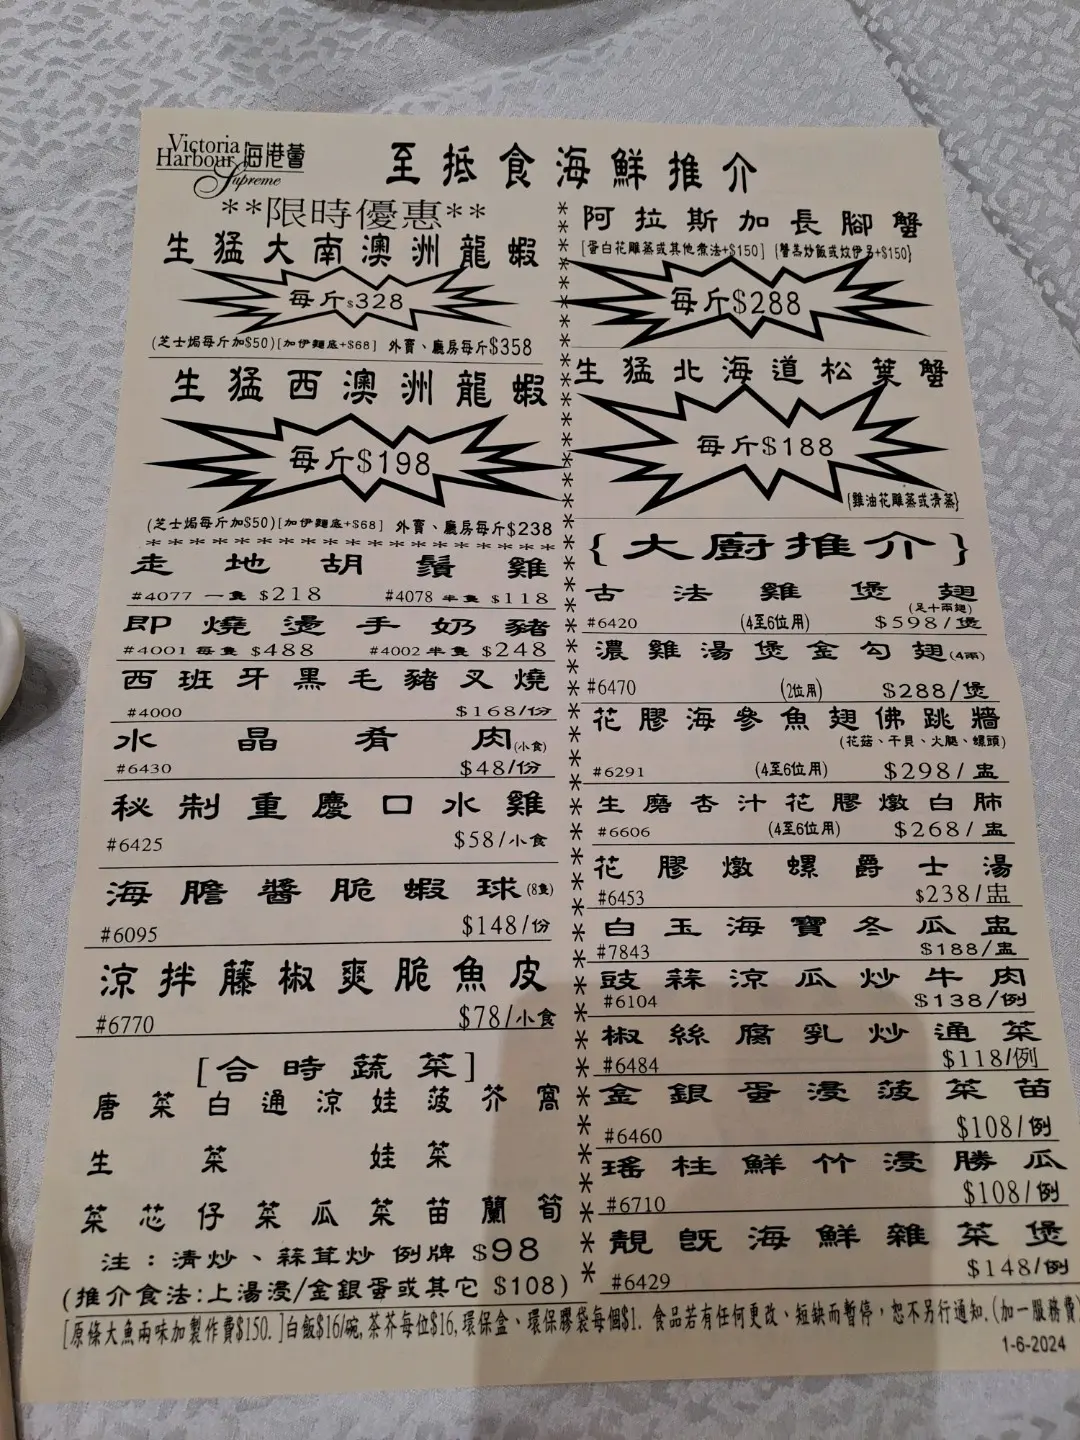 Victoria
Harbour 海港薈
Supreme
至抵食海鮮推介
**限時優惠**
生猛大南澳洲龍蝦
每斤$328
(芝士焗每斤加$50)[加伊麵底+$68] 外賣、廳房每斤$358
生猛西澳洲龍蝦
每斤$198
(芝士焗每斤加$50)[加伊麵底+$68] 外賣、廳房每斤$238
走地胡鬚雞
#4077 一隻 $218 #4078 半隻 $118
即燒燙手奶豬
#4001 每隻 $488 #4002 半隻 $248
西班牙黑毛豬叉燒
#4000 $168/份
水晶肴肉(小食)
#6430 $48/份
秘制重慶口水雞
#6425 $58/小食
海膽醬脆蝦球(8隻)
#6095 $148/份
涼拌藤椒爽脆魚皮
#6770 $78/小食
[合時蔬菜]
唐菜白通涼娃菠芥窩
生菜娃菜
菜芯仔菜瓜菜苗蘭筍
注：清炒、蒜茸炒 例牌 $98
(推介食法:上湯浸/金銀蛋或其它 $108)
阿拉斯加長腳蟹
[蛋白花雕蒸或其他煮法+$150] [蟹羔炒飯或炆伊另+$150}
每斤$288
生猛北海道松葉蟹
每斤$188
{雞油花雕蒸或清蒸}
{大廚推介}
古法雞煲翅
(足十兩翅)
#6420 (4至6位用) $598/煲
濃雞湯煲金勾翅(4兩)
#6470 (2位用) $288/煲
花膠海參魚翅佛跳牆
(花菇、干貝、火腿、螺頭)
#6291 (4至6位用) $298/盅
生磨杏汁花膠燉白肺
#6606 (4至6位用) $268/盅
花膠燉螺爵士湯
#6453 $238/盅
白玉海寶冬瓜盅
#7843 $188/盅
豉蒜涼瓜炒牛肉
#6104 $138/例
椒絲腐乳炒通菜
#6484 $118/例
金銀蛋浸菠菜苗
#6460 $108/例
瑤柱鮮竹浸勝瓜
#6710 $108/例
靚旣海鮮雜菜煲
#6429 $148/例
[原條大魚兩味加製作費$150.]白飯$16/碗,茶芥每位$16,環保盒、環保膠袋每個$1. 食品若有任何更改、短缺而暫停，恕不另行通知.(加一服務費)
1-6-2024